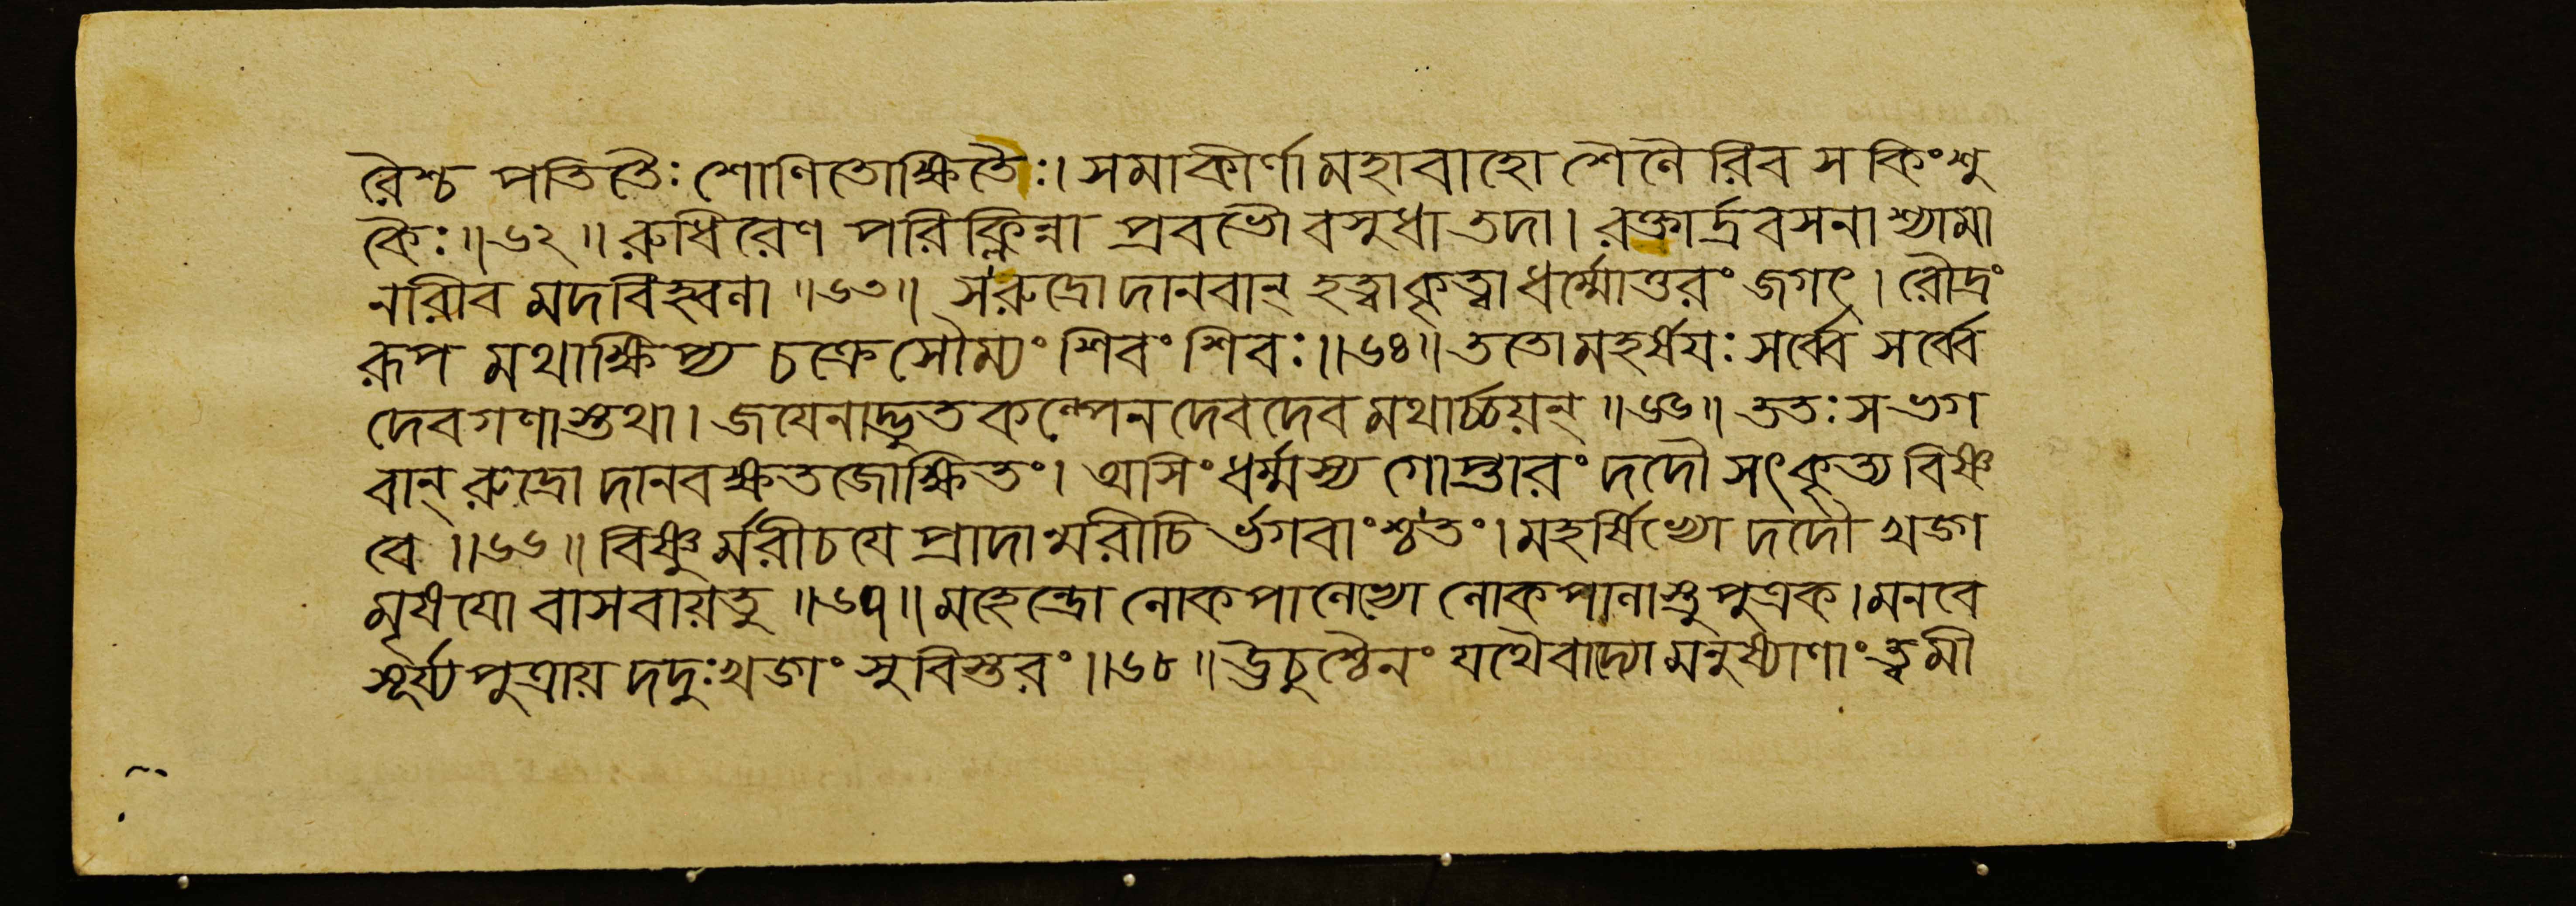 রৈশ্চ পতিতৈঃ শোণিতোক্ষিতৈঃ। সমাকীর্ণা মহাবাহো শৈলৈরিব সকিংশু
কৈঃ॥৬২॥ রুধিরেণ পরিক্লিন্না প্রবভৌ বসুধা তদা। রক্তার্দ্রবসনা শ্যামা
নারীব মদবিহ্বলা॥৬৩॥ স রুদ্রো দানবান্ হত্বা কৃত্বা ধর্ম্মোত্তরং জগৎ। রৌদ্রং
রূপমথাক্ষিপ্য চক্রে সৌম্যং শিবং শিবঃ॥৬৪॥ ততো মহর্ষয়ঃ সর্ব্বে সর্ব্বে
দেবগণাস্তথা। জয়েনাদ্ভুতকল্পেন দেবদেবমথার্চ্চয়ন্॥৬৫॥ ততঃ স ভগ
বান্ রুদ্রো দানবক্ষতজোক্ষিতং। অসিং ধর্ম্মস্য গোপ্তারং দদৌ সৎকৃত্য বিষ্ণ
বে॥৬৬॥ বিষ্ণুর্মরীচয়ে প্রাদান্মরীচির্ভগবাংশ্চ তং। মহর্ষিভ্যো দদৌ খড়্গ
মৃষয়ো বাসবায় তু॥৬৭॥ মহেন্দ্রো লোকপালেভ্যো লোকপালাস্তু পুত্রক। মনবে
সূর্য্যপুত্রায় দদুঃ খড়্গং সুবিস্তরং॥৬৮॥ ঊচুশ্চৈনং যথৈবাদ্যা মনুষ্যাণাং ত্বমী